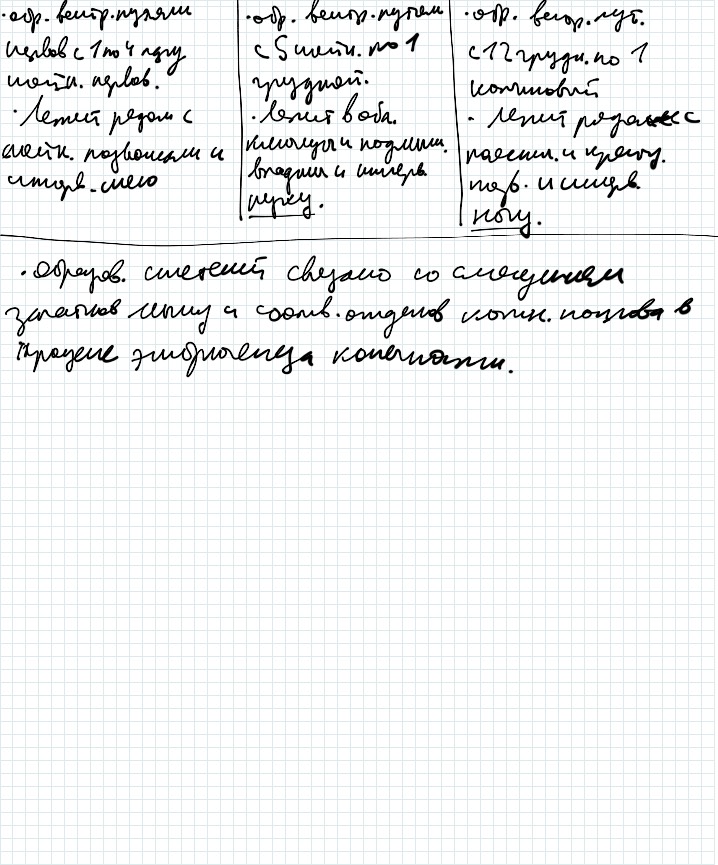 ·обр. вентр. путями
нервов с 1 по 4 пару
шейн. нервов.
·Лежит рядом с
шейн. позвонками и
иннерв. шею
·обр. вентр. путем
с 5 шейн. по 1
грудной.
·Лежит в обл.
ключицы и подмыш.
впадины и иннерв.
руку.
·обр. вентр. пут.
с 12 грудн. по 1
копчиковый
· лежит рядом с
поясн. и крестц.
позв. и иннерв.
ногу.
·образов. сплетений связано со смещением
зачатков мышц и соотв. отделов кожн. покрова в
процессе эмбриогенеза конечности.